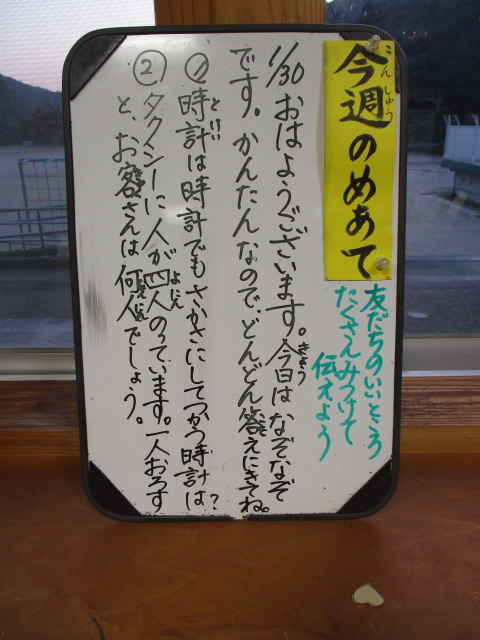 今週のめあて
こんしゅう
友だちのいいところ
たくさんみつけて
伝えよう
1/30 おはようございます。今日はなぞなぞ
きょう
です。かんたんなので、どんどん答えにきてね。
① 時計は時計でもさかさにしてつかう時計は?
とけい
② タクシーに人が四人のっています。一人おろす
よにん
と、お客さんは何人でしょう。
なんにん